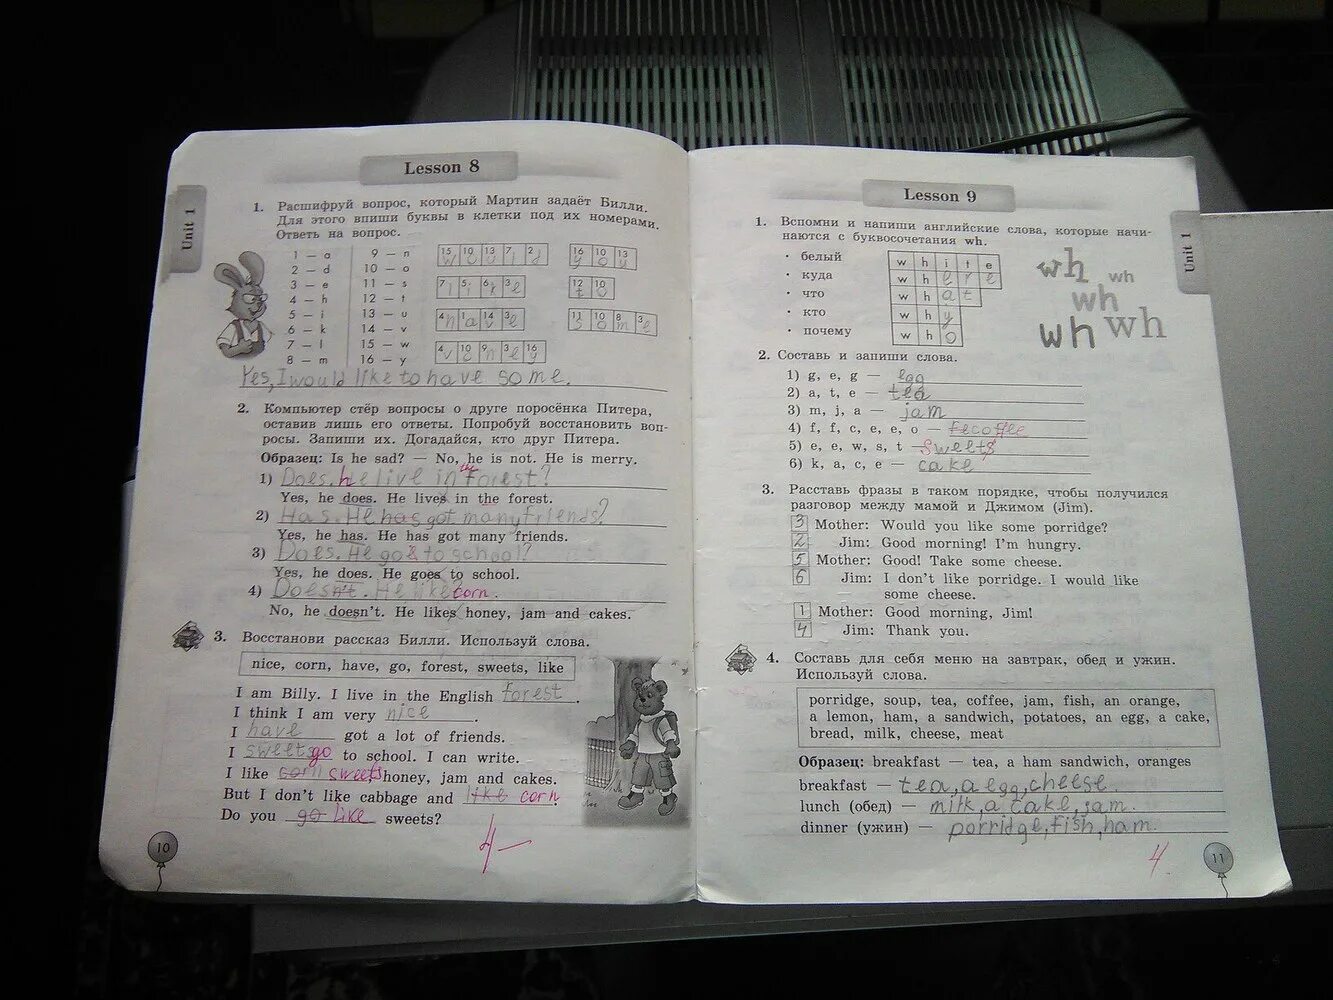 Lesson 8
Unit 1
1. Расшифруй вопрос, который Мартин задаёт Билли.
Для этого впиши буквы в клетки под их номерами.
Ответь на вопрос.
1 – a 9 – n
2 – d 10 – o
3 – e 11 – s
4 – h 12 – t
5 – i 13 – u
6 – k 14 – v
7 – l 15 – w
8 – m 16 – y
15 10 13 7 2 16 10 13
w o u l d y o u
7 5 6 3 12 10
l i k e t o
4 1 14 3 11 10 8 3
h a v e s o m e
4 10 9 3 16
Yes, I would like to have some.
2. Компьютер стёр вопросы о друге поросёнка Питера,
оставив лишь его ответы. Попробуй восстановить воп-
росы. Запиши их. Догадайся, кто друг Питера.
Образец: Is he sad? — No, he is not. He is merry.
1) Does. he live in the forest?
Yes, he does. He lives in the forest.
2) Has. He has got many friends?
Yes, he has. He has got many friends.
3) Does. He goes to school?
Yes, he does. He goes to school.
4) Doesn't. He like corn.
No, he doesn't. He likes honey, jam and cakes.
3. Восстанови рассказ Билли. Используй слова.
nice, corn, have, go, forest, sweets, like
I am Billy. I live in the English forest.
I think I am very nice.
I have got a lot of friends.
I sweets go to school. I can write.
I like corn sweets honey, jam and cakes.
But I don't like cabbage and like corn
Do you go like sweets?
4–
10
Lesson 9
Unit 1
1. Вспомни и напиши английские слова, которые начи-
наются с буквосочетания wh.
• белый w h i t e
• куда w h e r e
• что w h a t
• кто w h y
• почему w h o
wh wh
wh
wh wh
2. Составь и запиши слова.
1) g, e, g — egg
2) a, t, e — tea
3) m, j, a — jam
4) f, f, c, e, e, o — fecoffee
5) e, e, w, s, t — sweets
6) k, a, c, e — cake
3. Расставь фразы в таком порядке, чтобы получился
разговор между мамой и Джимом (Jim).
3 Mother: Would you like some porridge?
2 Jim: Good morning! I'm hungry.
5 Mother: Good! Take some cheese.
6 Jim: I don't like porridge. I would like
some cheese.
1 Mother: Good morning, Jim!
4 Jim: Thank you.
4. Составь для себя меню на завтрак, обед и ужин.
Используй слова.
porridge, soup, tea, coffee, jam, fish, an orange,
a lemon, ham, a sandwich, potatoes, an egg, a cake,
bread, milk, cheese, meat
Образец: breakfast — tea, a ham sandwich, oranges
breakfast — tea, a egg, cheese.
lunch (обед) — milk, a cake, jam.
dinner (ужин) — porridge, fish, ham.
4.
11